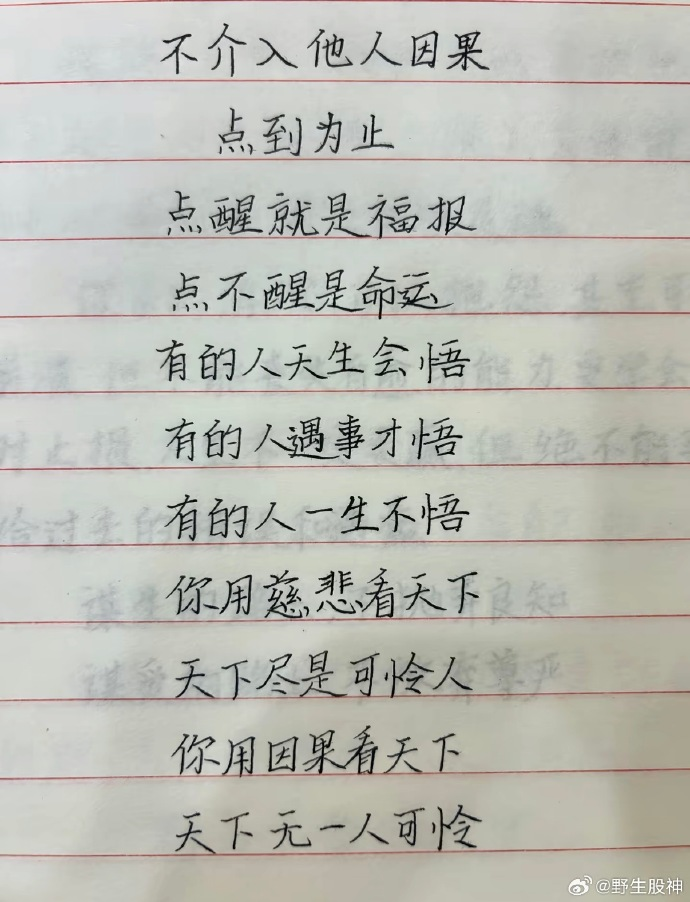 不介入他人因果
点到为止
点醒就是福报
点不醒是命运
有的人天生会悟
有的人遇事才悟
有的人一生不悟
你用慈悲看天下
天下尽是可怜人
你用因果看天下
天下无一人可怜
@野生股神